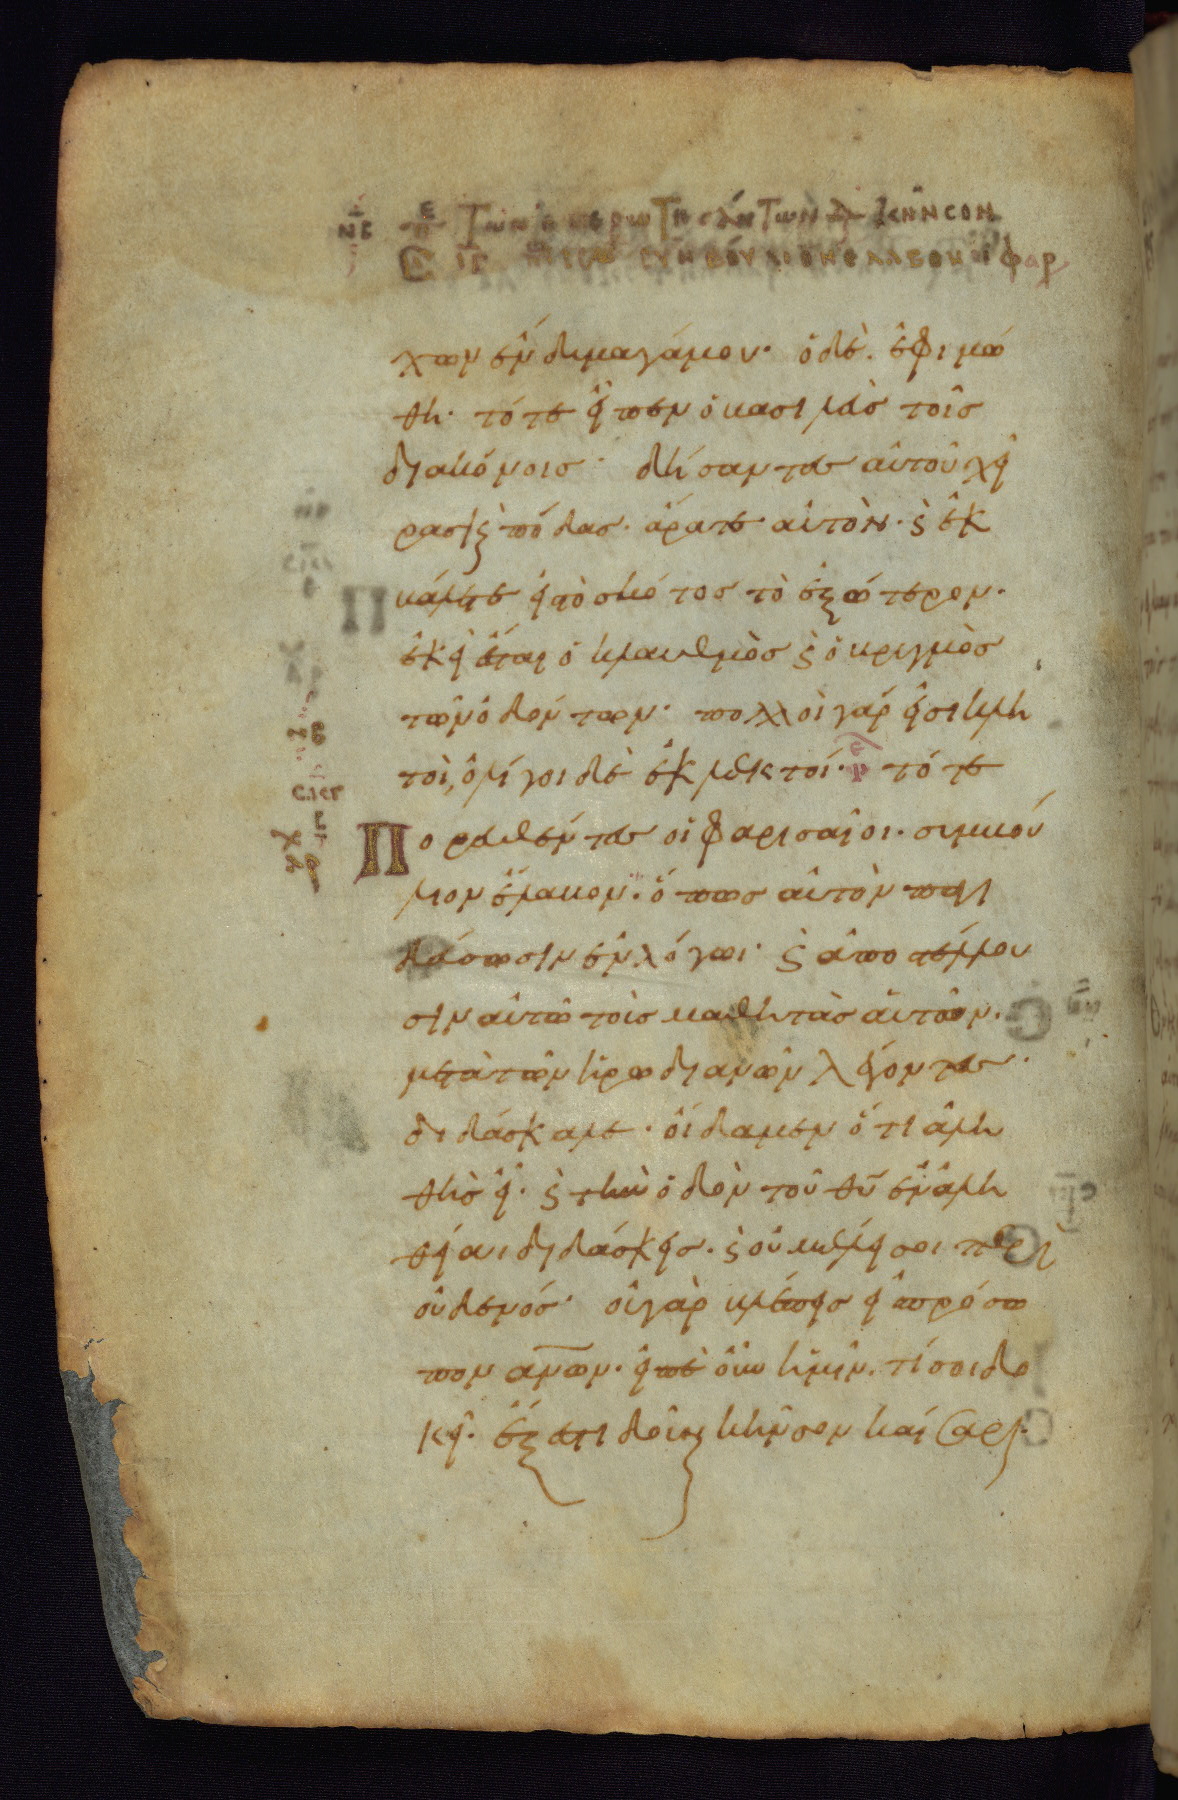 ΝΕ ΠΕ Τῶν ἐπερωτησάντων διὰ κῆνσον
συμβούλιον ἔλαβον οἱ φαρ
χων ἔνδυμα γάμου· ὁ δὲ ἐφιμώ
θη· τότε εἶπεν ὁ βασιλεὺς τοῖς
διακόνοις· δήσαντες αὐτοῦ χεῖ
ρας ϗ πόδας· ἄρατε αὐτὸν· ϗ ἐκ
βάλετε εἰς τὸ σκότος τὸ ἐξώτερον·
ἐκεῖ ἔσται ὁ κλαυθμὸς ϗ ὁ βρυγμὸς
τῶν ὀδόντων· πολλοὶ γάρ εἰσι κλη
τοὶ, ὀλίγοι δὲ ἐκλεκτοί· τότε
Πορευθέντες οἱ φαρισαῖοι· συμβού
λιον ἔλαβον· ὅπως αὐτὸν παγι
δεύσωσιν ἐν λόγωι· ϗ ἀποστέλλου
σιν αὐτῶ τοὺς μαθητὰς αὐτῶν·
μετὰ τῶν ἡρωδιανῶν λέγοντες·
διδάσκαλε· οἴδαμεν ὅτι ἀλη
θὴς εἶ· ϗ τὴν ὁδὸν τοῦ θῦ ἐν ἀλη
θείαι διδάσκεις· ϗ οὐ μέλει σοι περὶ
οὐδενός· οὐ γὰρ βλέπεις εἰς πρόσω
πον ανων· εἰπὲ οὖν ἡμῖν· τί σοι δο
κεῖ· ἔξεστι δοῦναι κῆνσον καίσαρι·